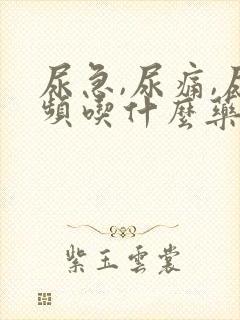 尿急,尿痛,尿
頻喫什麼藥
紫玉雲裳